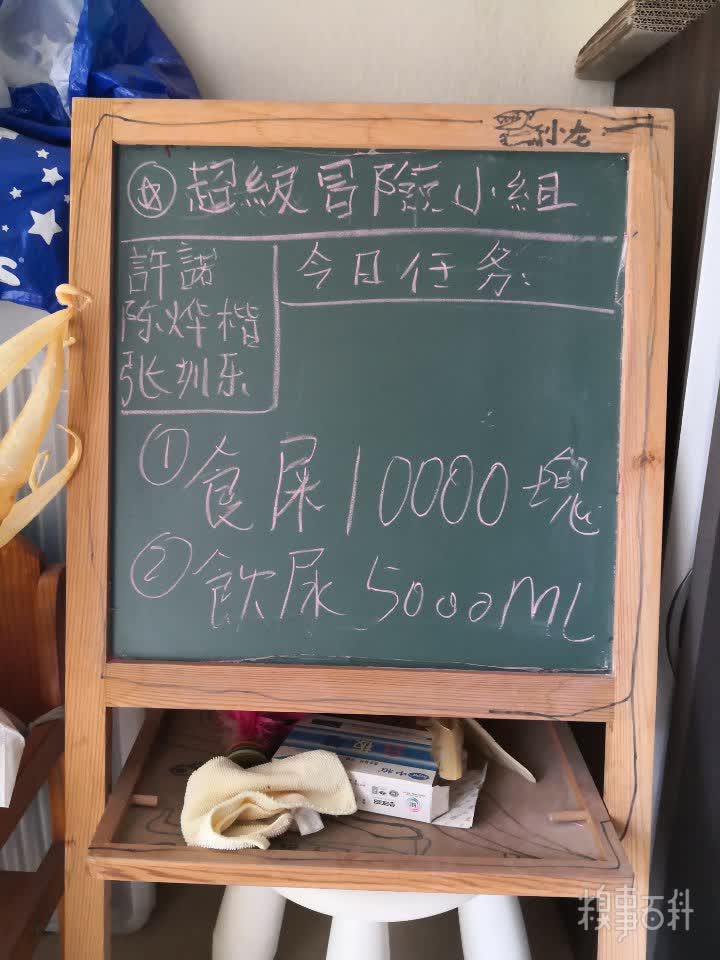 小龙
超級冒險小組
許諾
陈烨楷
张圳乐
今日任务：
①食屎10000塊
②飲尿5000ML
糗事百科